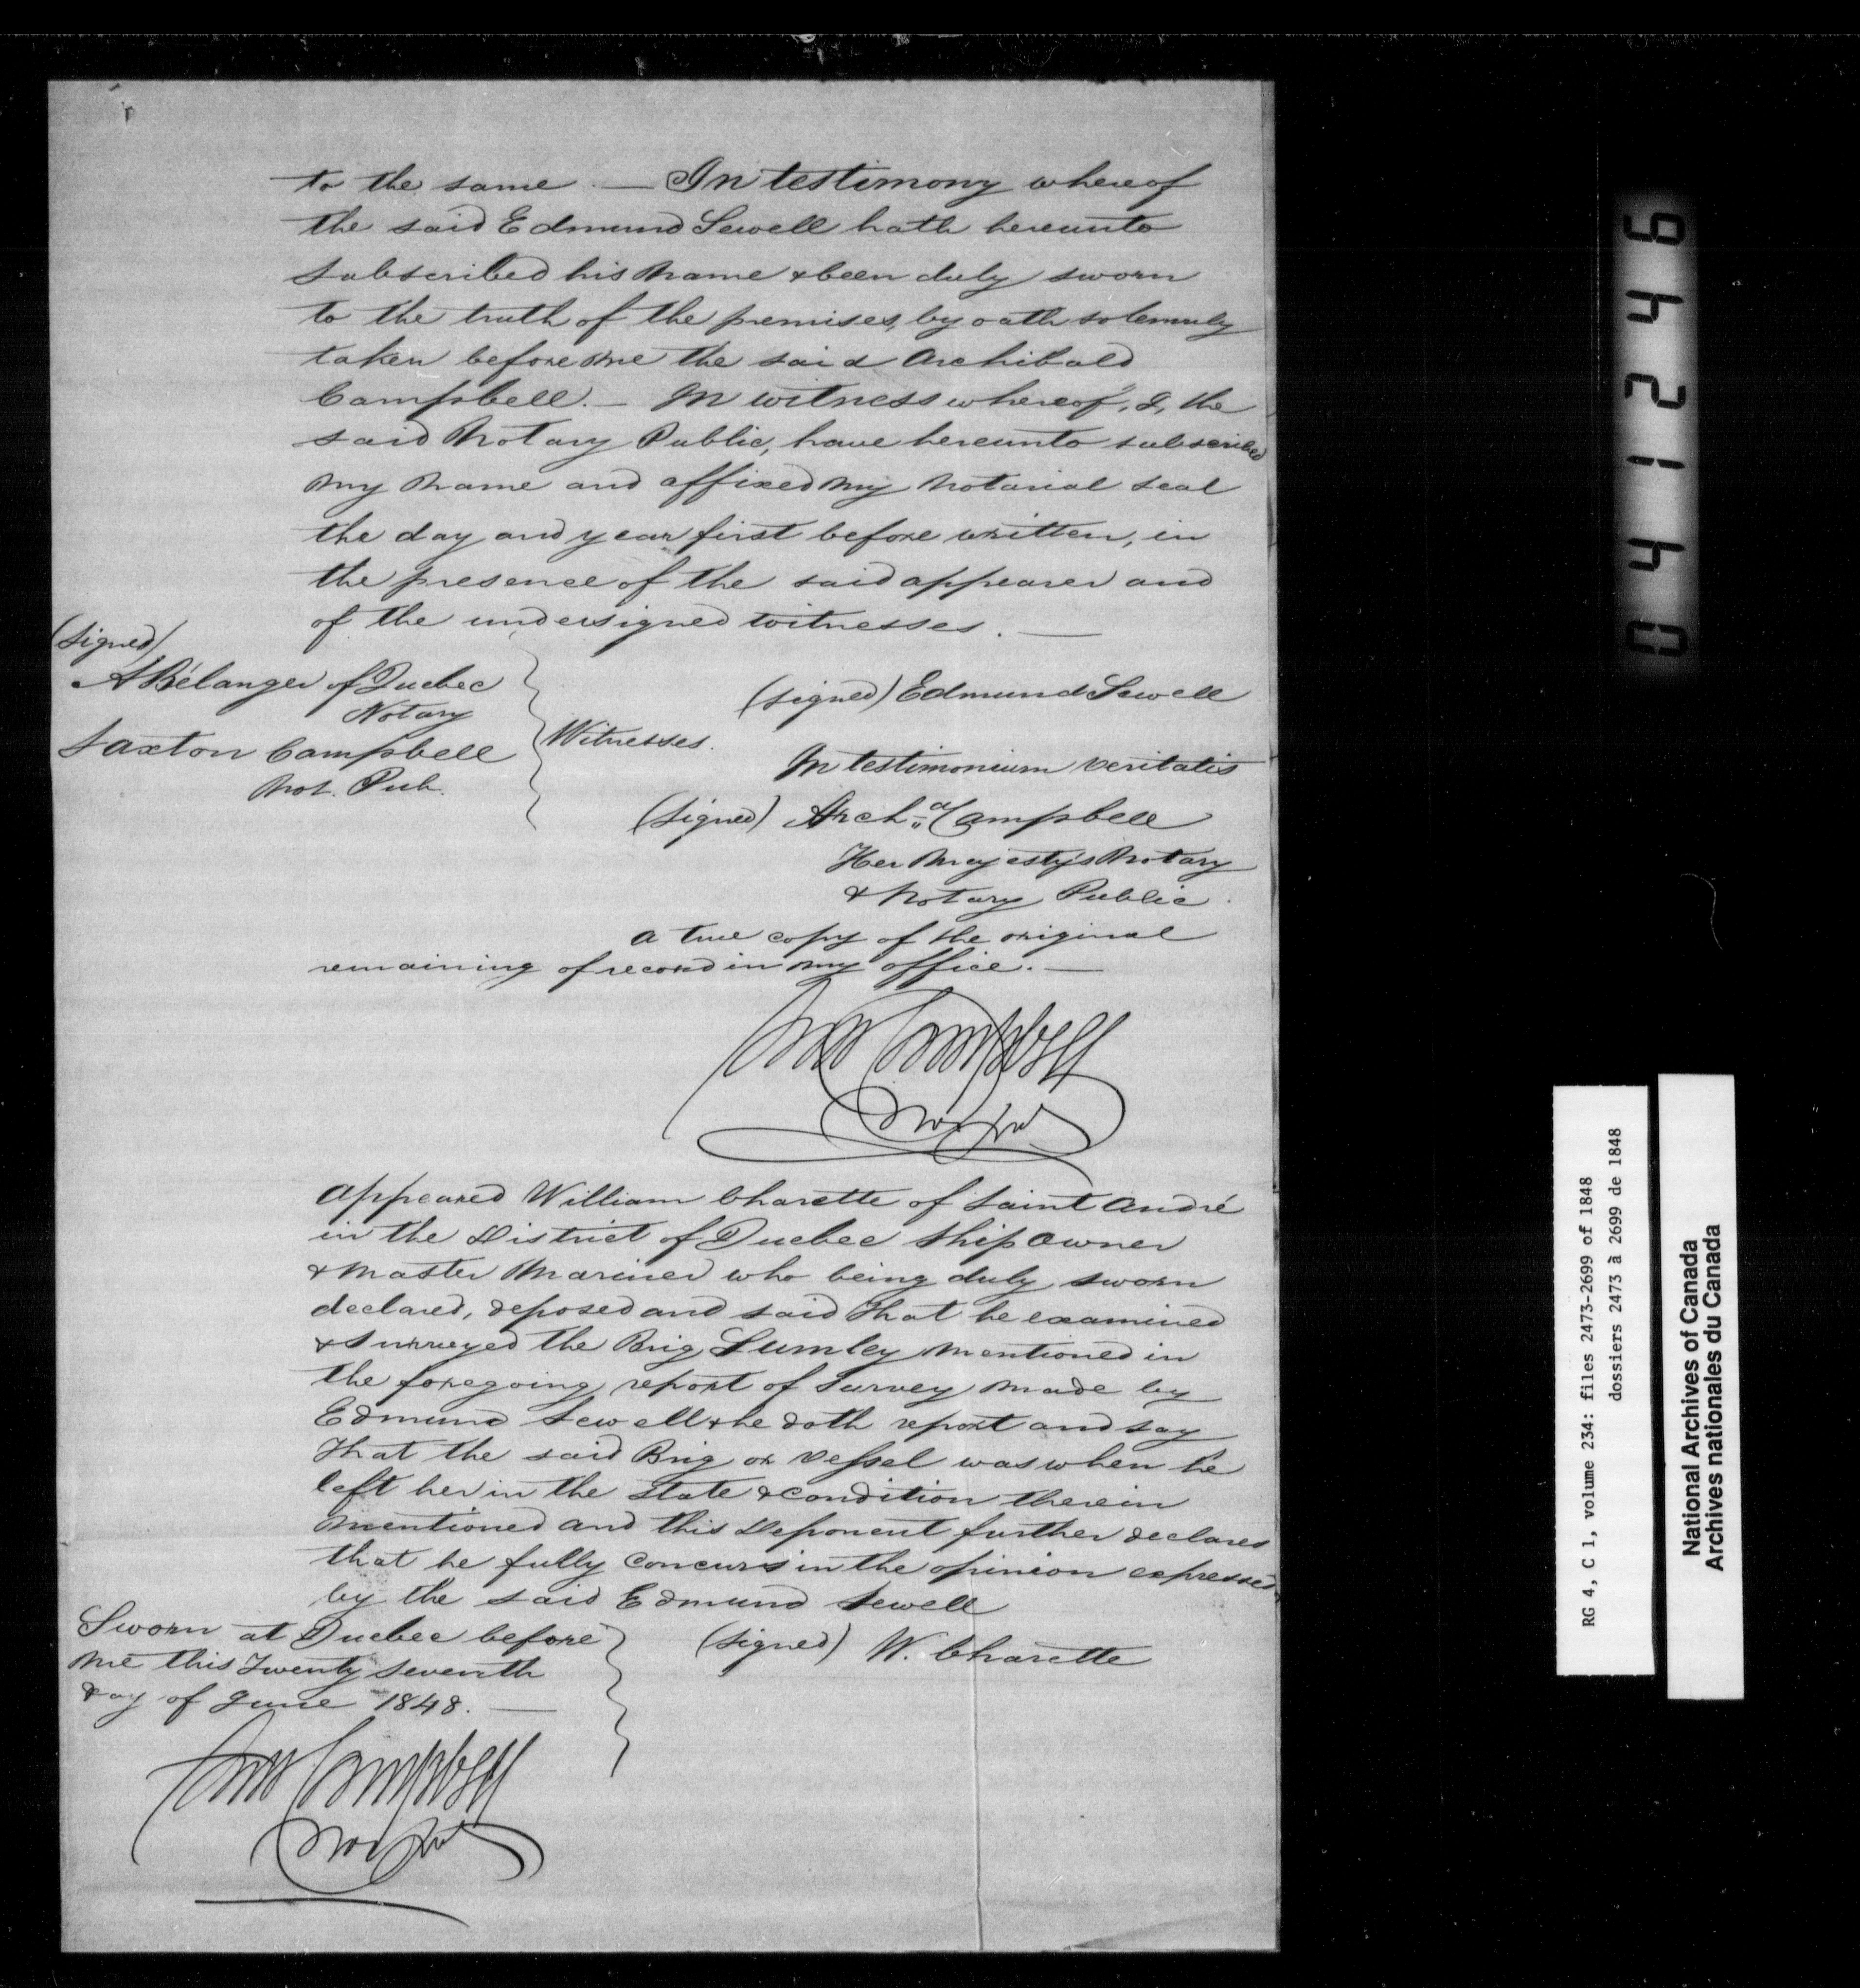 to the same. — In testimony whereof
the said Edmund Sewell hath hereunto
subscribed his name & been duly sworn
to the truth of the premises, by oath solemnly
taken before me the said Archibald
Campbell. — In witness whereof, I, the
said Notary Public, have hereunto subscribed
my name and affixed my notarial seal
the day and year first before written, in
the presence of the said appearer and
of the undersigned witnesses. —
(signed)
A Bélanger of Quebec
Notary
Saxton Campbell
Not. Pub.
Witnesses.
(signed) Edmund Sewell
In testimonium veritatis
(signed) Archd Campbell
Her Majesty's Notary
& Notary Public.
a true copy of the original
remaining of record in my office. —
Archd Campbell
Not Pub
appeared William Charette of Saint André
in the District of Quebec Ship Owner
& Master Mariner who being duly sworn
declared, deposed and said that he examined
& surveyed the Brig Lumley mentioned in
the foregoing report of Survey made by
Edmund Sewell & he doth report and say
that the said Brig or Vessel was when he
left her in the state & condition therein
mentioned and this Deponent further declares
that he fully concurs in the opinion expressed
by the said Edmund Sewell
Sworn at Quebec before
me this Twenty seventh
day of June 1848. —
(signed) W. Charette
Archd Campbell
Not Pub
042149
RG 4, C 1, volume 234: files 2473-2699 of 1848
dossiers 2473 à 2699 de 1848
National Archives of Canada
Archives nationales du Canada